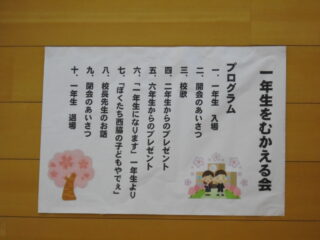 一年生をむかえる会
プログラム
一、一年生　入場
二、開会のあいさつ
三、校歌
四、二年生からのプレゼント
五、六年生からのプレゼント
六、「一年生になります」一年生より
七、「ぼくたち西脇の子どもやでぇ」
八、校長先生のお話
九、閉会のあいさつ
十、一年生　退場